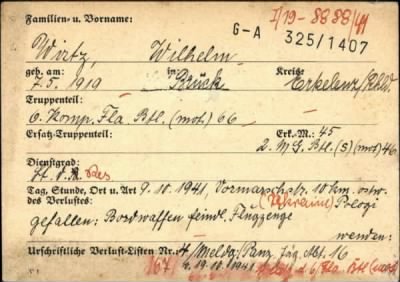 Familien- u. Vorname: I/19-8888/41
G-A 325/1407
Wirtz, Wilhelm
geb. am: in: Kreis:
7.5.1919 Brück Erkelenz/Rhld
Truppenteil:
6. Komp. Fla Btl. (mot) 66
Ersatz-Truppenteil: Erk.-M.: 45
2. M.G. Btl. (S) (mot) 46
Dienstgrad:
Lt. d. R. des
Tag, Stunde, Ort u. Art 9.10.1941, Vormarschstr. 10 km. ostw.
des Verlustes: (Ukraine) Prlogi
gefallen: Bordwaffen feindl. Flugzeuge
wenden:
Urschriftliche Verlust-Listen Nr.: 4/Meldg. Panz. Jäg. Abt. 16
167/ v. 19.10.1941